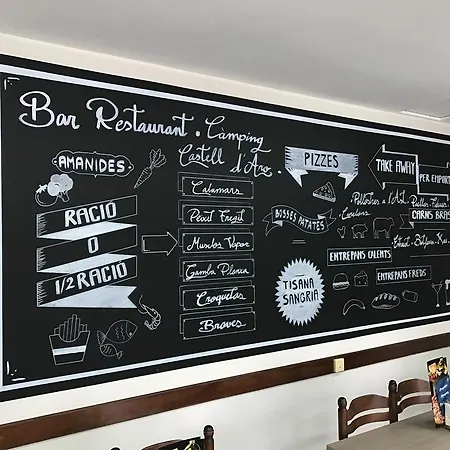 Bar Restaurant . Càmping
Castell d'Aro
AMANIDES
RACIÓ
O
1/2 RACIÓ
Calamars
Peixit Fregit
Musclos Vapor
Gamba Planxa
Croquetas
Braves
PIZZES
BOSSES PATATES
TISANA
SANGRIA
TAKE AWAY
PER EMPORT
Pollastres a l'Ast
CARNS BRAS
ENTREPANS CALENTS
ENTREPANS FREDS